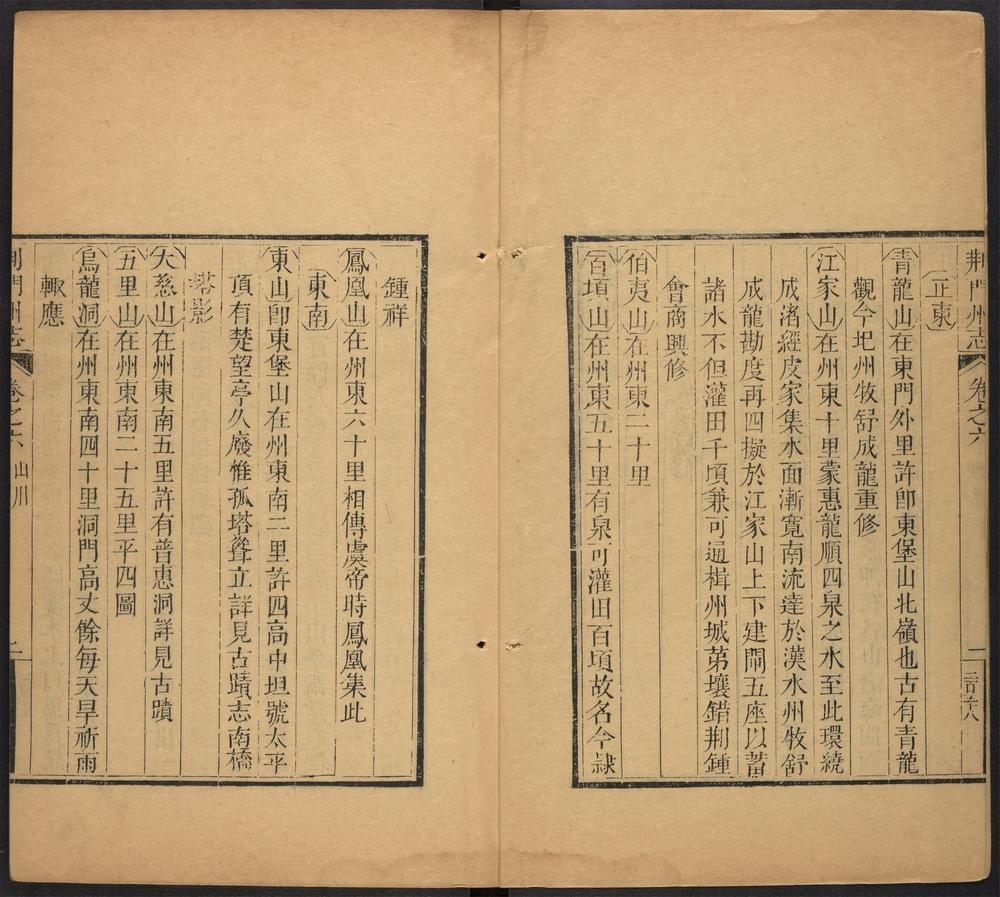 荆門州志 卷之六
正東
青龍山在東門外里許卽東堡山北嶺也古有青龍
觀今圯州牧舒成龍重修
江家山在州東十里蒙惠龍順四泉之水至此環繞
成渚經皮家集水面漸寬南流達於漢水州牧舒
成龍勘度再四擬於江家山上下建閘五座以蓄
諸水不但灌田千頃兼可通楫州城第壤錯荆鍾
會商興修
伯夷山在州東二十里
百頃山在州東五十里有泉可灌田百頃故名今隷
鍾祥
鳳凰山在州東六十里相傳虞帝時鳳凰集此
東南
東山卽東堡山在州東南二里許四高中坦號太平
頂有楚望亭久廢惟孤塔聳立詳見古蹟志南橋
塔影
大慈山在州東南五里許有普惠洞詳見古蹟
五里山在州東南二十五里平四圖
烏龍洞在州東南四十里洞門高丈餘每天旱祈雨
輙應
荆門州志 卷之六 山川 二